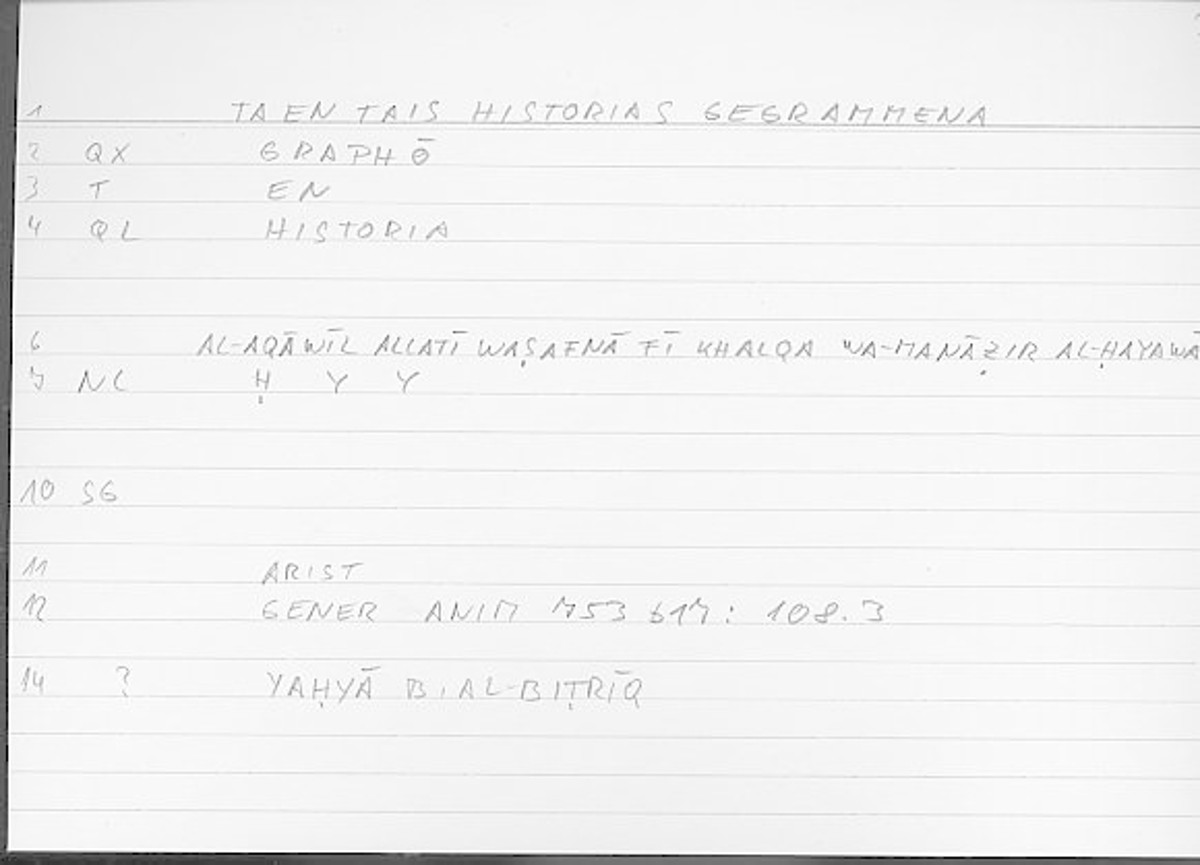 1 TA EN TAIS HISTORIAS GEGRAMMENA
2 QX GRAPHŌ
3 T EN
4 QL HISTORIA
6 AL-AQĀWĪL ALLATĪ WAṢAFNĀ FĪ KHALQA WA-MANĀẒIR AL-ḤAYAWĀ
7 NC Ḥ Y Y
10 SG
11 ARIST
12 GENER ANIM 753 b17: 108.3
14 ? YAḤYĀ B. AL-BIṬRĪQ